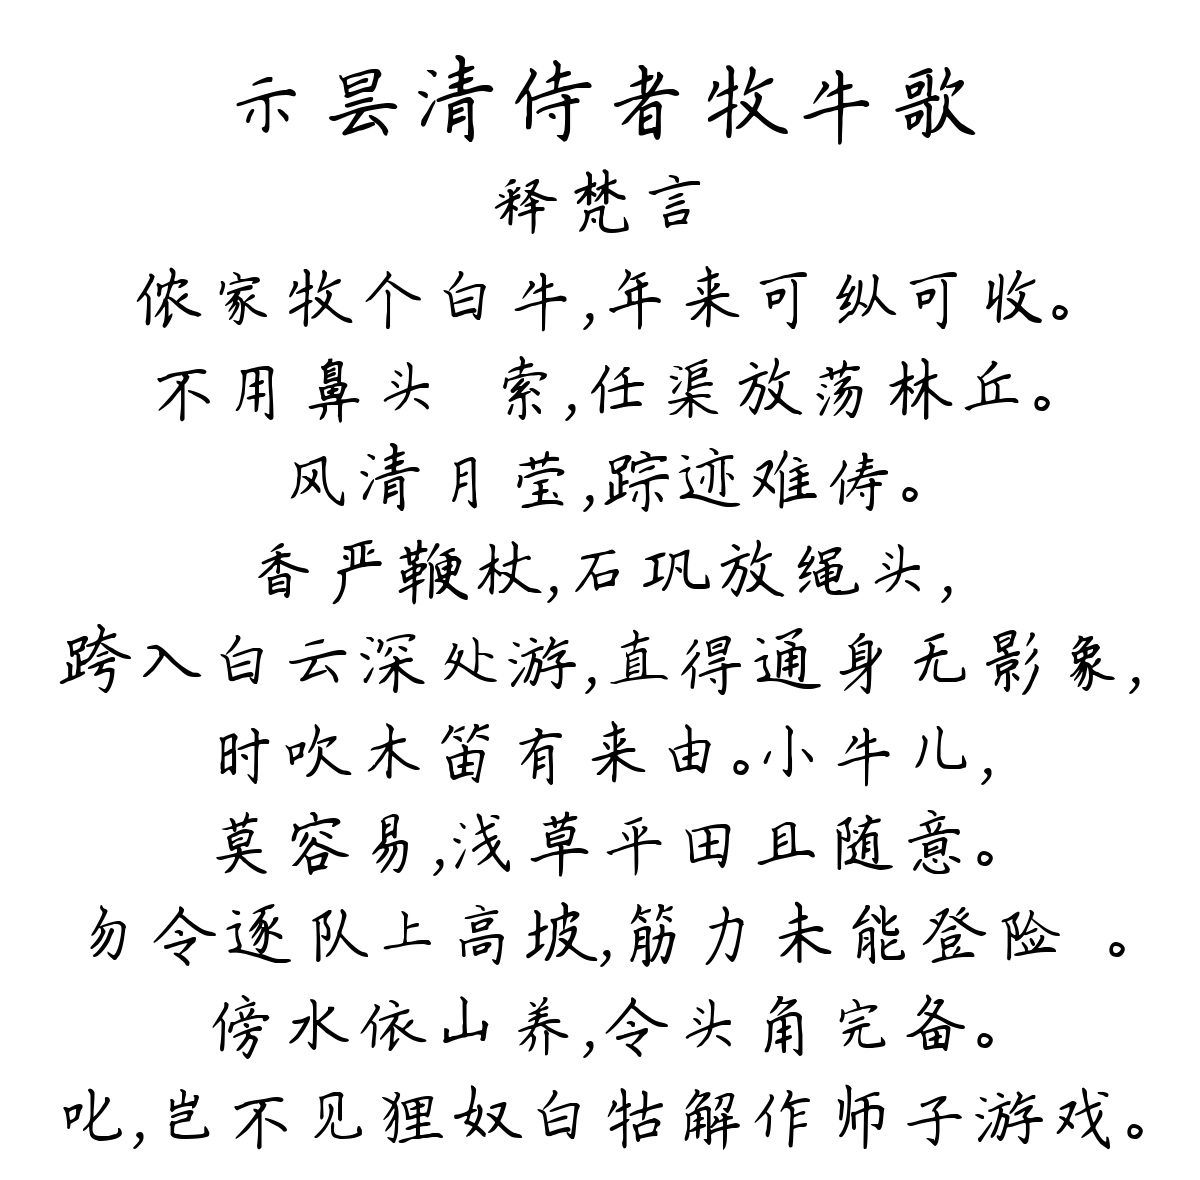 示昙清侍者牧牛歌
释梵言
侬家牧个白牛,年来可纵可收。
不用鼻头 索,任渠放荡林丘。
风清月莹,踪迹难俦。
香严鞭杖,石巩放绳头,
跨入白云深处游,直得通身无影象,
时吹木笛有来由。小牛儿,
莫容易,浅草平田且随意。
勿令逐队上高坡,筋力未能登险 。
傍水依山养,令头角完备。
叱,岂不见狸奴白牯解作师子游戏。